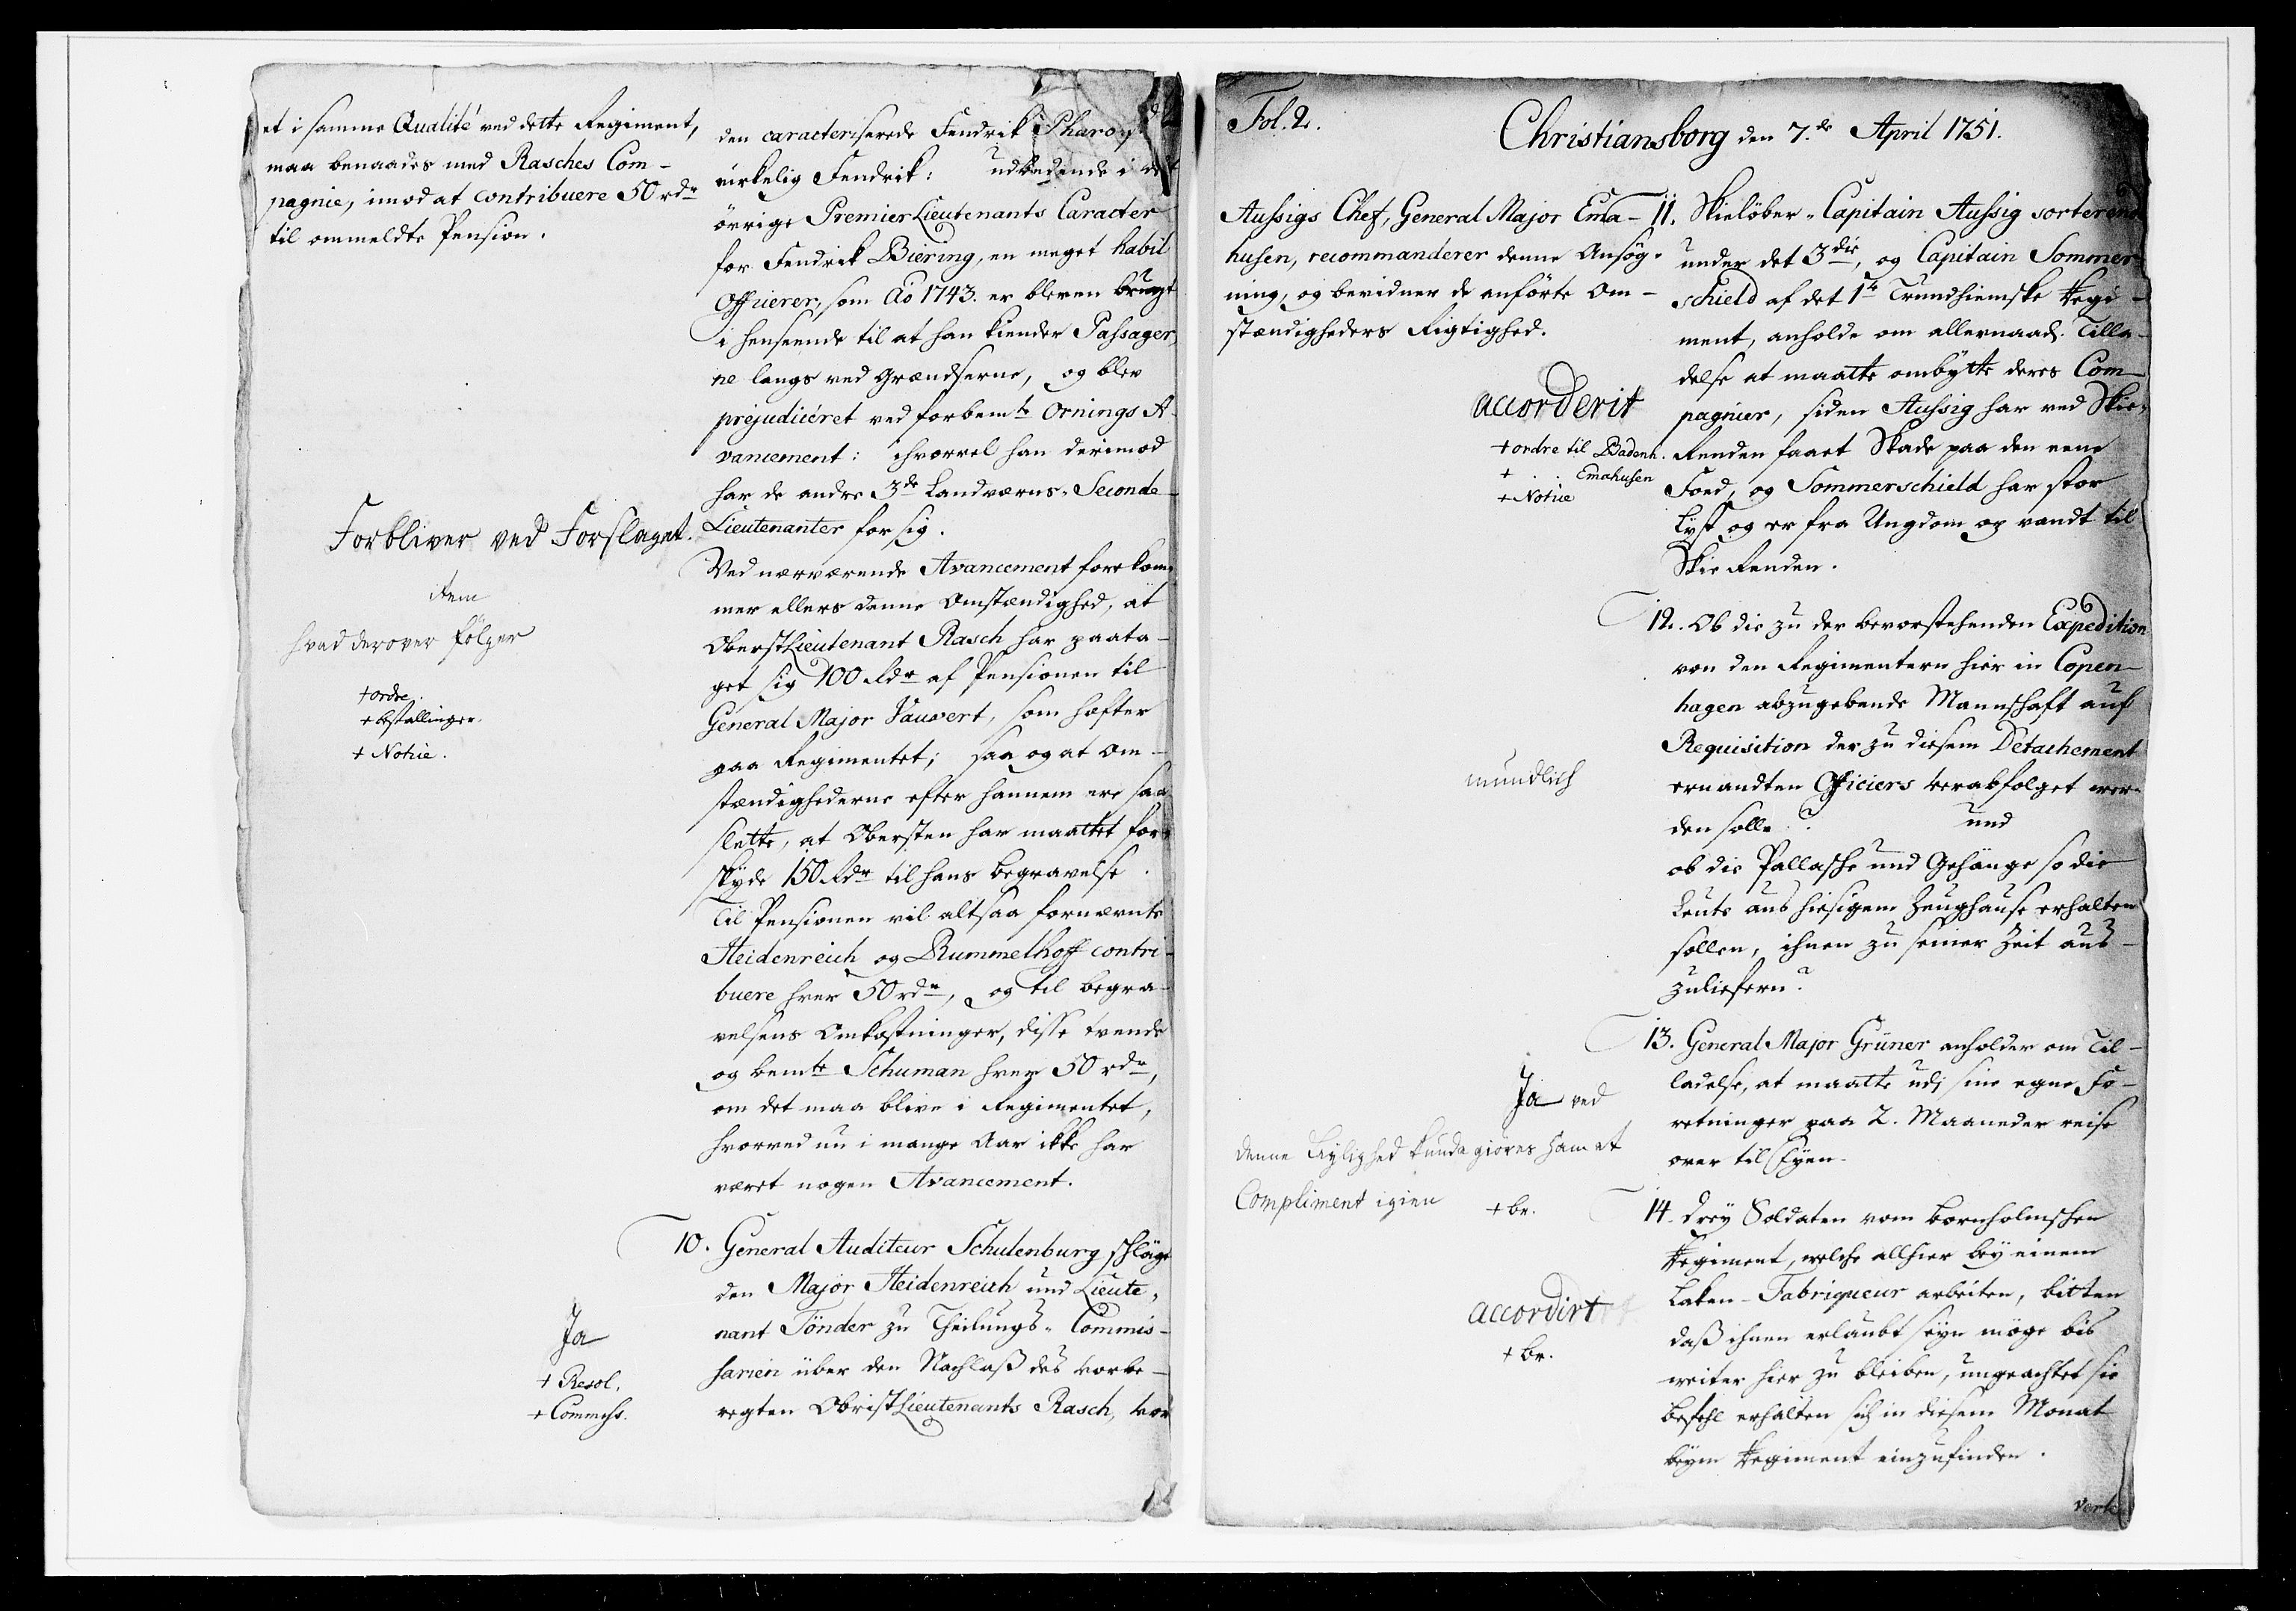 et i samme Qualité ved dette Regiment,
maa benaades med Rasches Com-
pagnie, imod at contribuere 50 rdr
til ommeldte Pension.
Forbliver ved Forslaget.
Item
hvad derover følger
+ ordre.
+ bestallinger.
+ Notice.
den caracteriserede Fendrik Pharo
virkelig Fendrik: udbedende i det
övrige PremierLieutenants Caracter
for Fendrik Biering, en meget habil
Officerer, som Ao 1743. er bleven brugt
i henseende til at han kiender Passager,
ne langs ved Grændserne, og blev
prejudicéret ved forbemte Ornings A-
vancement: ihvorvel han derimod
har de andre 3de Landværns-Seconde-
Lieutenanter for sig.
Ved nærværende Avancement forekom-
mer ellers denne Omstændighed, at
OberstLieutenant Rasch har paata-
get sig 100 Rdr af Pensionen til
General Major Vauvert, som hæfter
paa Regimentet; saa og at Om-
stændighederne efter hannem ere saa
slette, at Obersten har maattet for-
skyde 150 Rdr til hans begravelse.
Til Pensionen vil altsaa fornævnte
Heidenreich og Rummelhoff contri-
buere hver 50 rdr, og til begra-
velsens Omkostninger, disse tvende
og bemte Schuman hver 50 rdr,
om det maa blive i Regimentet,
hvorved nu i mange Aar ikke har
været nogen Avancement.
10. General Auditeur Schulenburg schläge
den Major Heidenreich und Lieute-
nant Tönder zu Theilungs-Commis-
sarien über den Nachlaß des vorbe-
regten ObristLieutenants Rasch, vor
Ja
+ Resol.
+ Commiss.
Fol. 2.
Christiansborg den 7.de April 1751.
Aussigs Chef, General Major Ema-
husen, recommanderer denne Ansög-
ning, og bevidner de anförte Om-
stændigheders Rigtighed.
accorderit
+ ordre til Badenh.
+ . . Emahusen
+ Notice
11. Skielöber-Capitain Aussig sorterend
under det 3die, og Capitain Sommer-
schield af det 1te Trundhiemske Regi-
ment, anholde om allernaad. Tilla-
delse at maatte ombytte deres Com-
pagnier, siden Aussig har ved Skie-
Renden faaet Skade paa den eene
Foed, og Sommerschield har stor
Lyst og er fra Ungdom op vandt til
Skie Renden.
12. Ob die zu der bevorstehenden Expedition
von den Regimentern hier in Copen-
hagen abzugebende Mannschaft auf
Requisition der zu diesem Détachement
ernandten Officiers verabfolget wer-
den solle? und
ob die Pallasche und Gehänge so die
Leute aus hiesigem Zeughause erhalten
sollen, ihnen zu seiner Zeit aus-
zuliefern?
mundlich
13. General Major Grüner anholder om Til-
ladelse, at maatte udi sine egne Fo-
retninger paa 2. Maaneder reise
over til Fyen.
Ja ved
denne Leylighed kunde giöres ham et
Compliment igien
+ br.
14. Drey Soldaten vom Bornholmschen
Regiment, welche allhier bey einem
Laken-Fabriqueur arbeiten, bitten
daß ihnen erlaubt seyn möge bis
weiter hier zu bleiben, ungeachtet sie
Befehl erhalten sich in diesem Monat
beym Regiment einzufinden.
accordirt
+ br.
verte